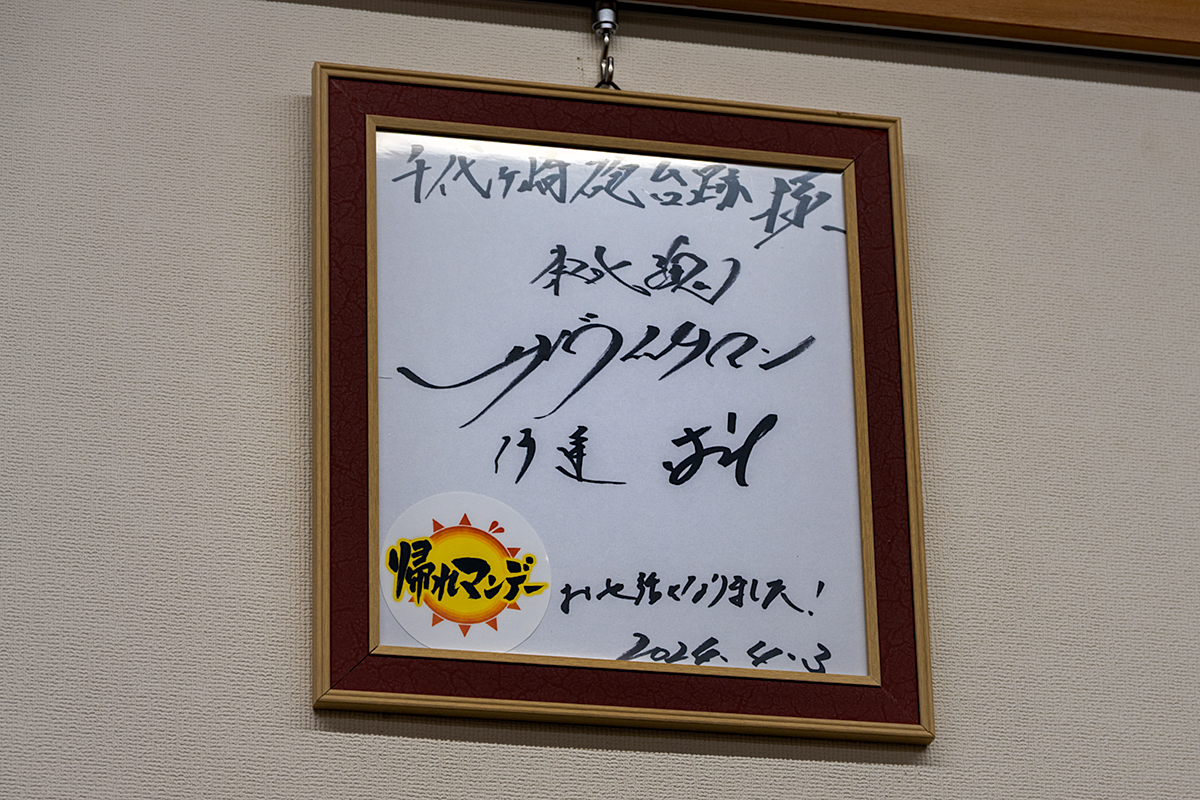 千代ヶ崎砲台跡 様
東北魂
サンドウィッチマン
伊達 みきお
帰れマンデー
お世話になりました!
2024.4.3